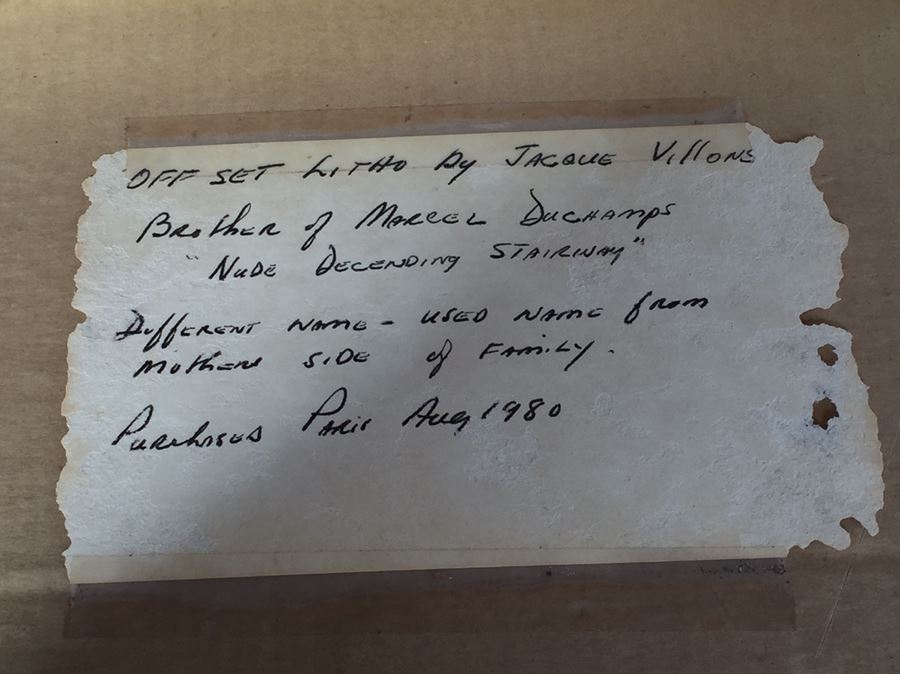 OFF SET LITHO by JACQUE VillONS
Brother of MARCEL DUCHAMPS
"NUDE DECENDING STAIRWAY"
Different NAME - USED NAME from
mothers SIDE of FAMILY.
Purchased PARIS Aug 1980